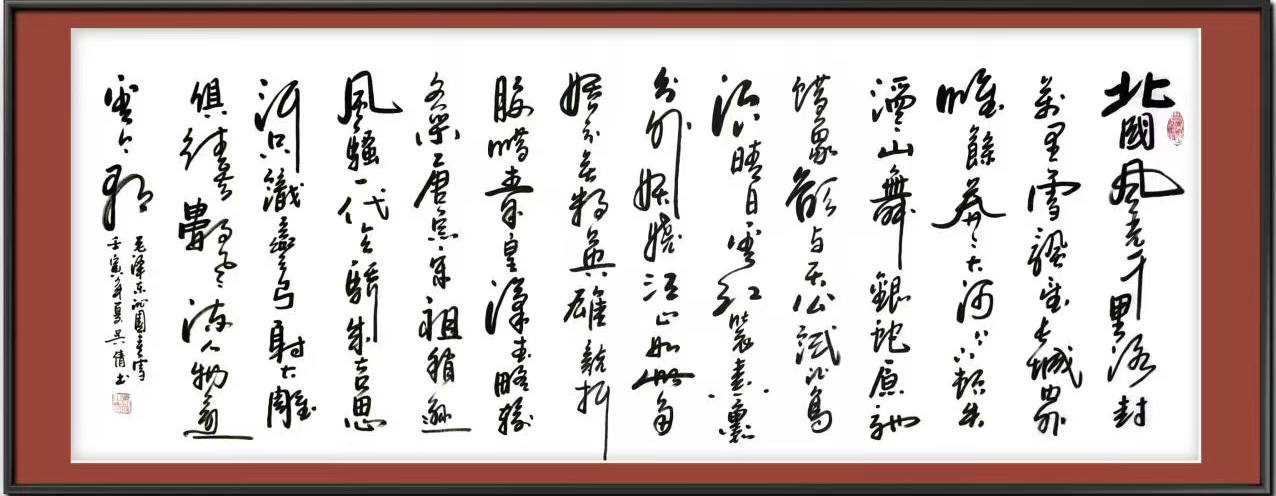 北國风光千里冰封
萬里雪飄望长城内外
惟餘莽々大河上下頓失
滔々山舞銀蛇原馳
蜡象欲与天公試比高
須晴日看红装素裹
分外妖娆江山如此多
娇引无數英雄競折
腰惜秦皇漢武略輸
文采唐宗宋祖稍遜
風騷一代天驕成吉思
汗只識彎弓射大雕
俱往矣數风流人物還
看今朝
毛泽东沁園春雪
壬寅年夏吴倩书